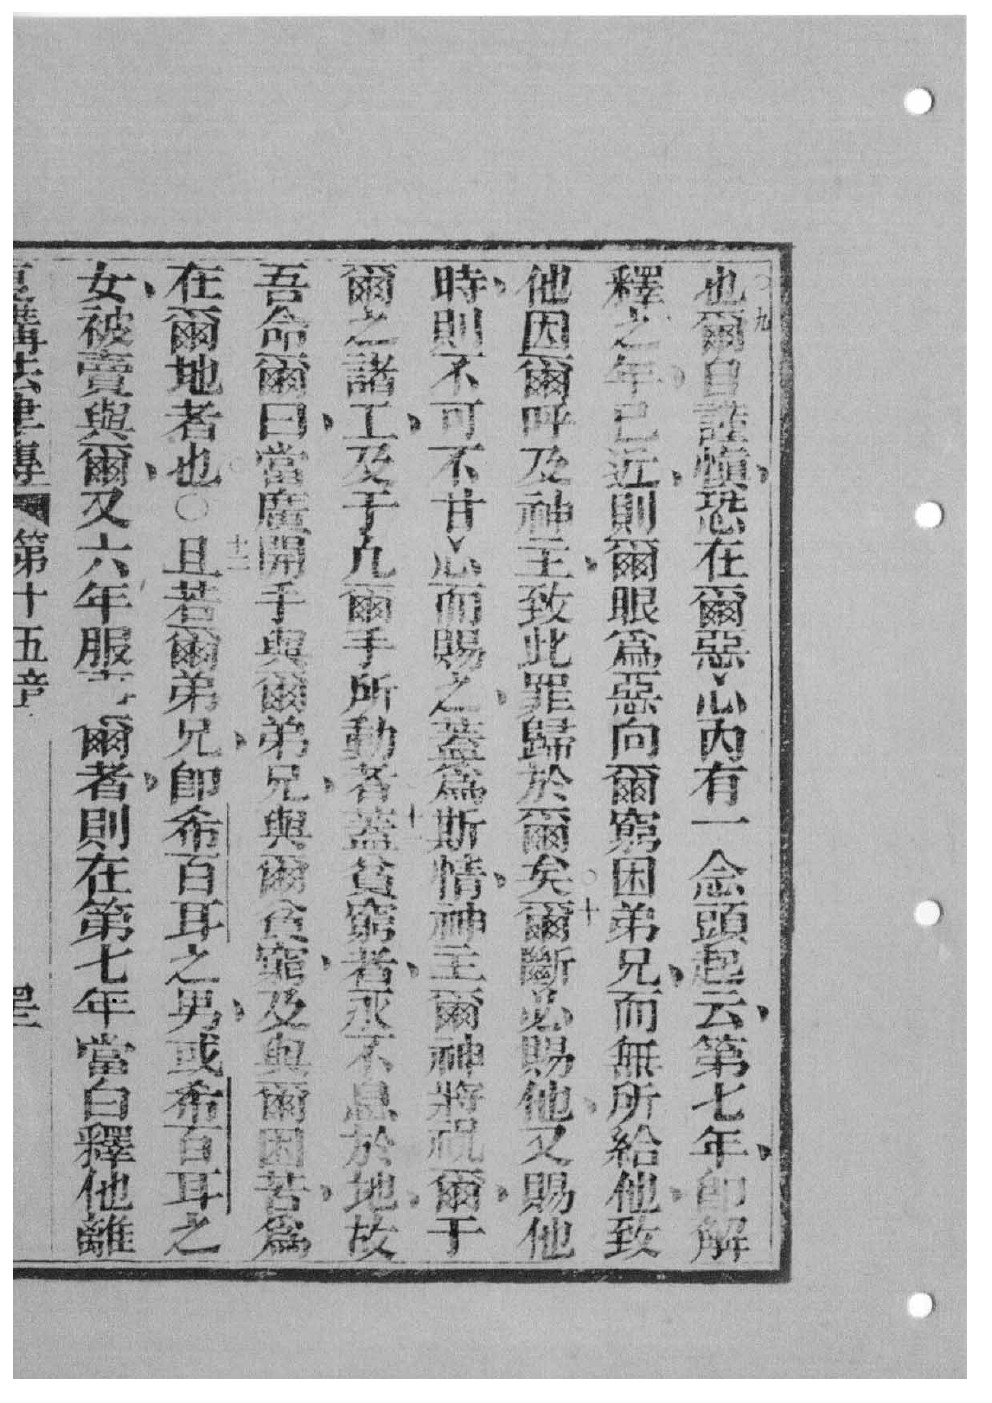 ○九
也爾自謹慎、恐在爾惡心內有一念頭起云、第七年、卽解
釋之年、已近、則爾眼爲惡向爾窮困弟兄、而無所給他、致
他因爾呼及神主、致此罪歸於爾矣○十爾斷必賜他、又賜他
時、則不可不甘心而賜之、蓋爲斯情、神主爾神將祝爾、于
爾之諸工、及于凡爾手所動者○十一蓋貧窮者、永不息於地、故
吾命爾曰、○當廣開手與爾弟兄、與爾貧窮、及與爾困苦、爲
在爾地者也○十二且若爾弟兄、卽希百耳之男、或希百耳之
女、被賣與爾、又六年服事爾者、則在第七年當白釋他離
復講法律傳 第十五章